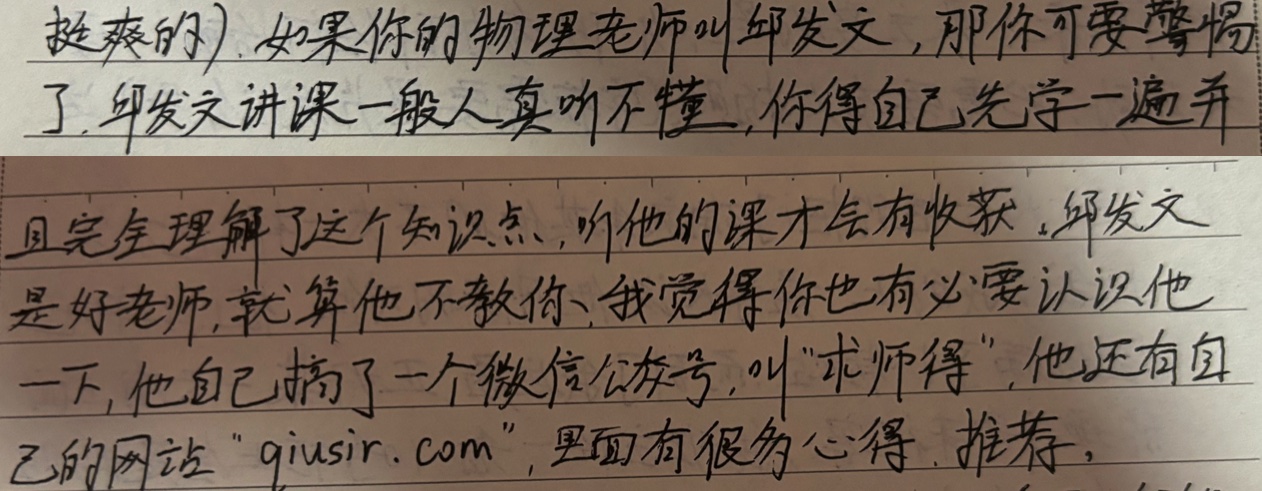 挺爽的).如果你的物理老师叫邱发文,那你可要警惕
了.邱发文讲课一般人真听不懂,你得自己先学一遍并
且完全理解了这个知识点,听他的课才会有收获.邱发文
是好老师,就算他不教你、我觉得你也有必要认识他
一下,他自己搞了一个微信公众号,叫"求师得",他还有自
己的网站"qiusir.com",里面有很多心得.推荐,